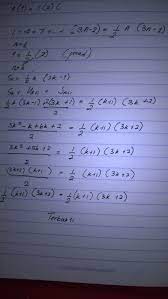 1 + 4 + 7 + ... + (3n-2) = 1/2 n (3n-1)
n=1
1 = 1/2 (2)
n=k
Sk = 1/2 k (3k-1)
1/2 k (3k-1) + (3k+1) = 1/2 (k+1) (3k+2)
3k² - k + 6k + 2 / 2 = 1/2 (k+1) (3k+2)
3k² + 5k + 2 / 2 = 1/2 (k+1) (3k+2)
(3k+2) (k+1) / 2 = 1/2 (k+1) (3k+2)
1/2 (k+1) (3k+2) = 1/2 (k+1) (3k+2)
Terbukti